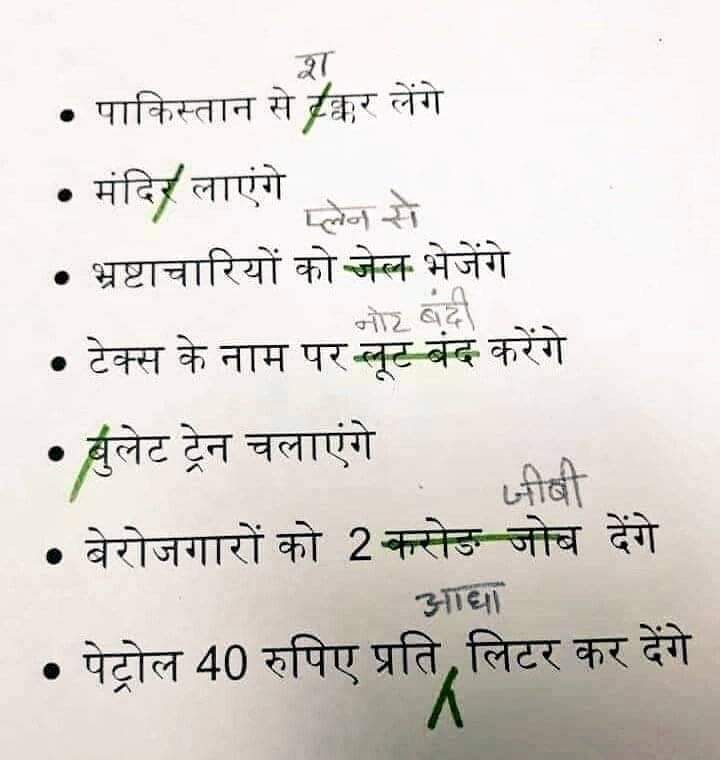 श
• पाकिस्तान से टक्कर लेंगे
• मंदिर लाएंगे
प्लेन से
• भ्रष्टाचारियों को जेल भेजेंगे
नोट बंदी
• टेक्स के नाम पर लूट बंद करेंगे
• बुलेट ट्रेन चलाएंगे
जीबी
• बेरोजगारों को 2 करोड जोब देंगे
आधा
• पेट्रोल 40 रुपिए प्रति लिटर कर देंगे